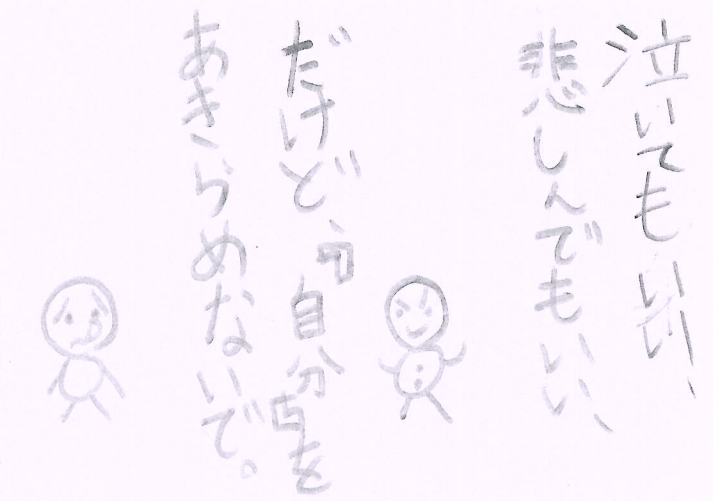 泣いてもいい、
悲しんでもいい、
だけど、『自分』を
あきらめないで。